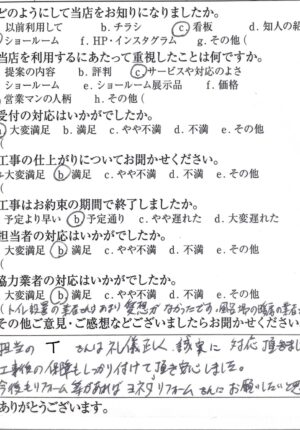 どのようにして当店をお知りになりましたか。
以前利用して b. チラシ c. 看板 d. 知人の紹
ショールーム f. HP・インスタグラム g. その他 (
当店を利用するにあたって重視したことは何ですか。
提案の内容 b. 評判 c. サービスや対応のよさ
ショールーム e. ショールーム展示品 f. 価格
営業マンの人柄 h. その他 (
受付の対応はいかがでしたか。
大変満足 b. 満足 c. やや不満 d. 不満 e. その他
(
工事の仕上がりについてお聞かせください。
大変満足 b. 満足 c. やや不満 d. 不満 e. その他
(
工事はお約束の期間で終了しましたか。
予定より早い b. 予定通り c. やや遅れた d. 大変遅れた
担当者の対応はいかがでしたか。
大変満足 b. 満足 c. やや不満 d. 不満 e. その他
(
協力業者の対応はいかがでしたか。
大変満足 b. 満足 c. やや不満 d. 不満 e. その他
(トイレ設置の業者さんはあまり愛想がなかったです。
その他ご意見・ご感想などございましたらお聞かせください
担当の T さんは礼儀正しく誠実に対応頂きまし
工事後の保障もしっかり付けて頂き安心しました。
今後もリフォーム等があればヨネタリフォームさんにお願いしたいと思
ありがとうございます。